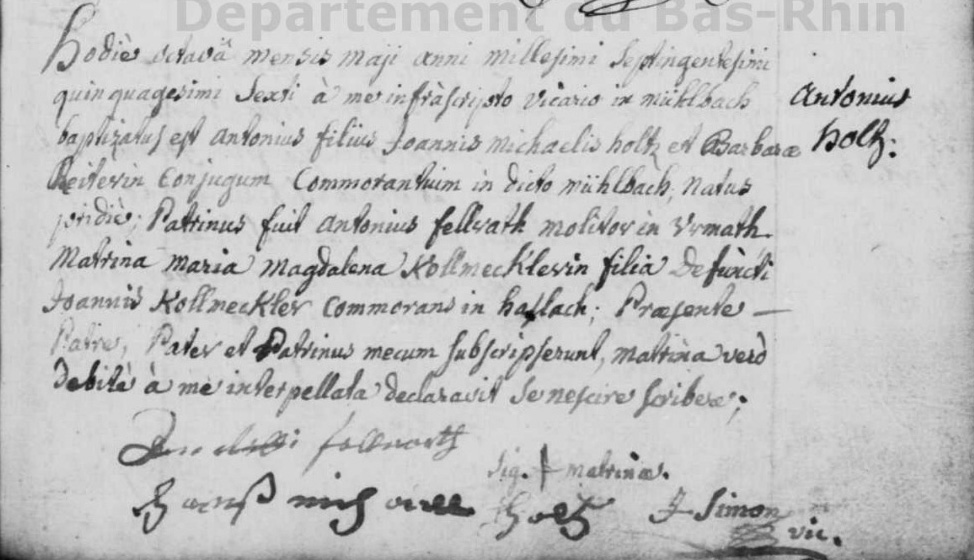 Departement du Bas-Rhin
Hodiè octavâ mensis maji anni millesimi septingentesimi
quinquagesimi sexti à me infràscripto vicario in mühlbach
baptizatus est antonius filius Joannis michaelis holtz et Barbaræ
Reiterin conjugum commorantium in dicto mühlbach, natus
pridiè; Patrinus fuit antonius fellrath molitor in Urmath.
Matrina maria magdalena Kollmecklerin filia defuncti
Joannis Kollmeckler commorans in haslach; Præsente —
Patre, Pater et Patrinus mecum subscripserunt, matrina verò
debitè à me interpellata declaravit se nescire scribere;
antonius
holtz.
sig. + matrinæ.
holtz
J Simon
vic.